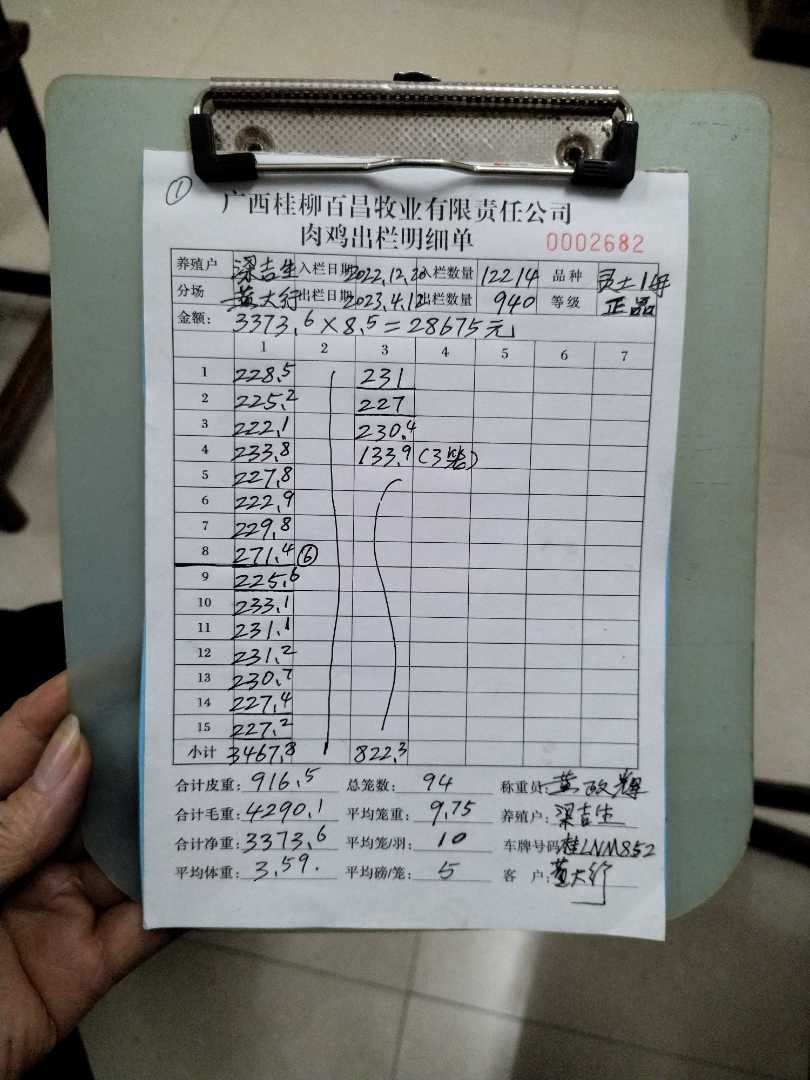 ①
广西桂柳百昌牧业有限责任公司
肉鸡出栏明细单 0002682
养殖户 梁吉生 入栏日期 2022.12.20 入栏数量 12214 品种 灵土1号
分场 黄大行 出栏日期 2023.4.12 出栏数量 940 等级 正品
金额: 3373.6×8.5=28675元
1 2 3 4 5 6 7
1 228.5 231
2 225.2 227
3 222.1 230.4
4 233.8 133.9 (3笼)
5 227.8
6 222.9
7 229.8
8 271.4 ⑥
9 225.6
10 233.1
11 231.1
12 231.2
13 230.7
14 227.4
15 227.2
小计 3467.8 822.3
合计皮重: 916.5 总笼数: 94 称重员: 黄政辉
合计毛重: 4290.1 平均笼重: 9.75 养殖户: 梁吉生
合计净重: 3373.6 平均笼/羽: 10 车牌号码: 桂LNM852
平均体重: 3.59. 平均磅/笼: 5 客户: 黄大行